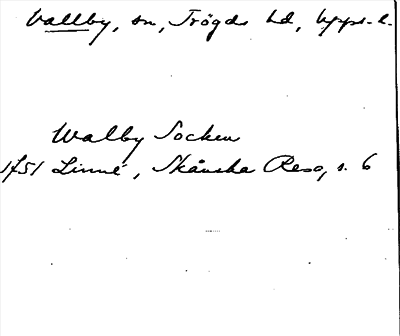 Vallby, sn, Trögds hd, Upps. l.
Walby Socken
1751 Linné, Skånska Resa, s. 6